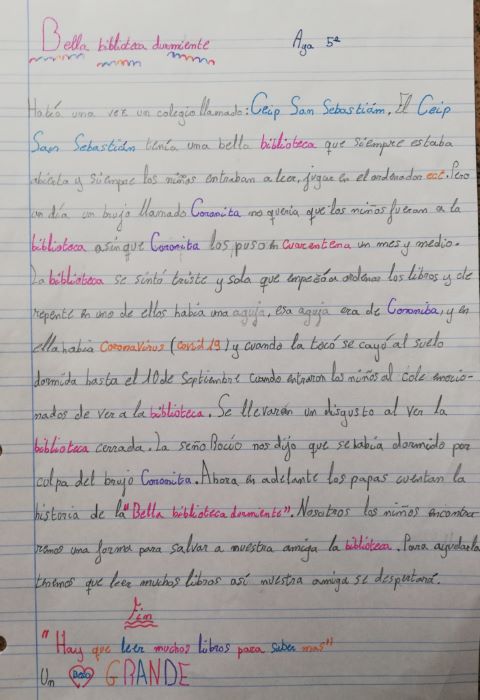 Bella biblioteca durmiente Aya 5º
Había una vez un colegio llamado: Ceip San Sebastián. El Ceip
San Sebastián tenía una bella biblioteca que siempre estaba
abierta y siempre los niños entraban a leer, jugar en el ordenador ect. Pero
un día un brujo llamado Coronita no quería que los niños fueran a la
biblioteca asinque Coronita los puso en cuarentena un mes y medio.
La biblioteca se sintó triste y sola que empezó a ordenar los libros y de
repente en uno de ellos había una aguja, esa aguja era de Coronita, y en
ella había Coronavirus (covid 19) y cuando la tocó se cayó al suelo
dormida hasta el 10 de Septiembre cuando entraron los niños al cole emocio-
nados de ver a la biblioteca. Se llevarán un disgusto al ver la
biblioteca cerrada. La seño Rocío nos dijo que se había dormido por
culpa del brujo Coronita. Ahora en adelante los papas cuentan la
historia de la "Bella biblioteca durmiente". Nosotros los niños encontra-
remos una forma para salvar a nuestra amiga la biblioteca. Para ayudarla
tenemos que leer muchos libros así nuestra amiga se despertará.
Fin
"Hay que leer muchos libros para saber mas"
Un Beso GRANDE